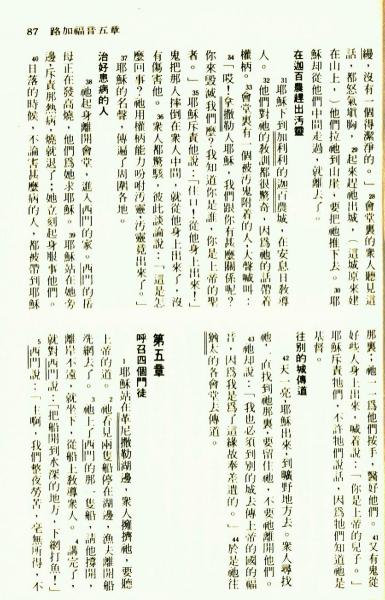 87　路加福音五章
縵，沒有一個得潔淨的。」28會堂裏的眾人聽見這
話，都怒氣填胸，29起來趕祂出城，（這城原來建
在山上，）他們拉祂到山崖，要把祂推下去。30耶
穌却從他們中間走過，就離去了。
在迦百農趕出汚靈
31耶穌下到加利利的迦百農城，在安息日教導
人。32他們對祂的教訓都很驚奇，因爲祂的話帶着
權柄。33會堂裏有一個被汚鬼附着的人，大聲喊叫：
34「哎！拿撒勒人耶穌，我們跟你有甚麼關係呢？
你來毀滅我們麼？我知道你是誰，你是上帝的聖
者。」35耶穌斥責他說：「住口！從他身上出來！」
鬼把那人摔倒在衆人中間，就從他身上出來了，沒
有傷害他。36衆人都驚駭，彼此談論說：「這是怎
麼回事？祂用權柄能力吩咐汚靈，汚靈竟出來了。」
37耶穌的名聲，傳遍了周圍各地。
治好患病的人
38祂起身離開會堂，進入西門的家。西門的岳
母正在發高燒，他們爲她求耶穌。39耶穌站在她旁
邊，斥責那熱病，燒就退了；她立刻起身服事他們。
40日落的時候，不論害甚麼病的人，都被帶到耶穌
那裏；祂一一爲他們按手，醫好他們。41又有鬼從
好些人身上出來，喊着說：「你是上帝的兒子。」
耶穌斥責牠們，不許牠們說話，因爲牠們知道祂是
基督。
往別的城傳道
42天一亮，耶穌出來，到曠野地方去。衆人尋找
祂，一直找到祂那裏，要留住祂，不要祂離開他們。
43祂却說：「我也必須到別的城去傳上帝的國的福
音，因爲我是爲了這緣故奉差遣的。」44於是祂往
猶太的各會堂去傳道。
第五章
呼召四個門徒
1耶穌站在革尼撒勒湖邊，衆人擁擠祂，要聽
上帝的道。2祂看見兩隻船停在湖邊，漁夫離開船
洗網去了。3祂上了西門的那一隻船，請他撐開，
離岸不遠，就坐下，從船上教導衆人。4講完了，
就對西門說：「把船開到水深的地方，下網打魚！」
5西門說：「主啊，我們整夜勞苦，毫無所得，不